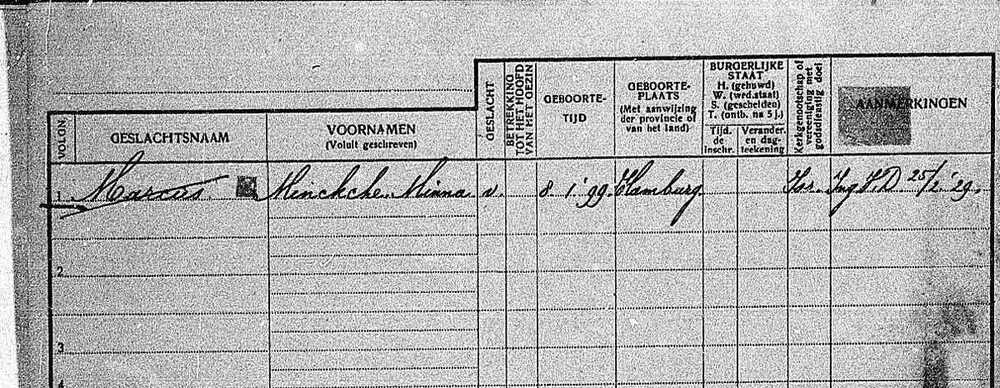 VOLG.N.
GESLACHTSNAAM
VOORNAMEN
(Voluit geschreven)
GESLACHT
BETREKKING
TOT HET HOOFD
VAN HET GEZIN
GEBOORTE-
TIJD
GEBOORTE-
PLAATS
(Met aanwijzing
der provincie of
van het land)
BURGERLIJKE
STAAT
H. (gehuwd)
W. (wed.staat)
S. (gescheiden)
T. (ontb. na 5 j.)
Tijd.
de
inschr.
Verander.
en dag-
teekening
Kerkgenootschap of
vereeniging met
godsdienstig doel
AANMERKINGEN
1 Marcus Minckche Minna v. 8 1 '99 Hamburg Isr. Ing V.D. 25/2 '29.
2
3
4